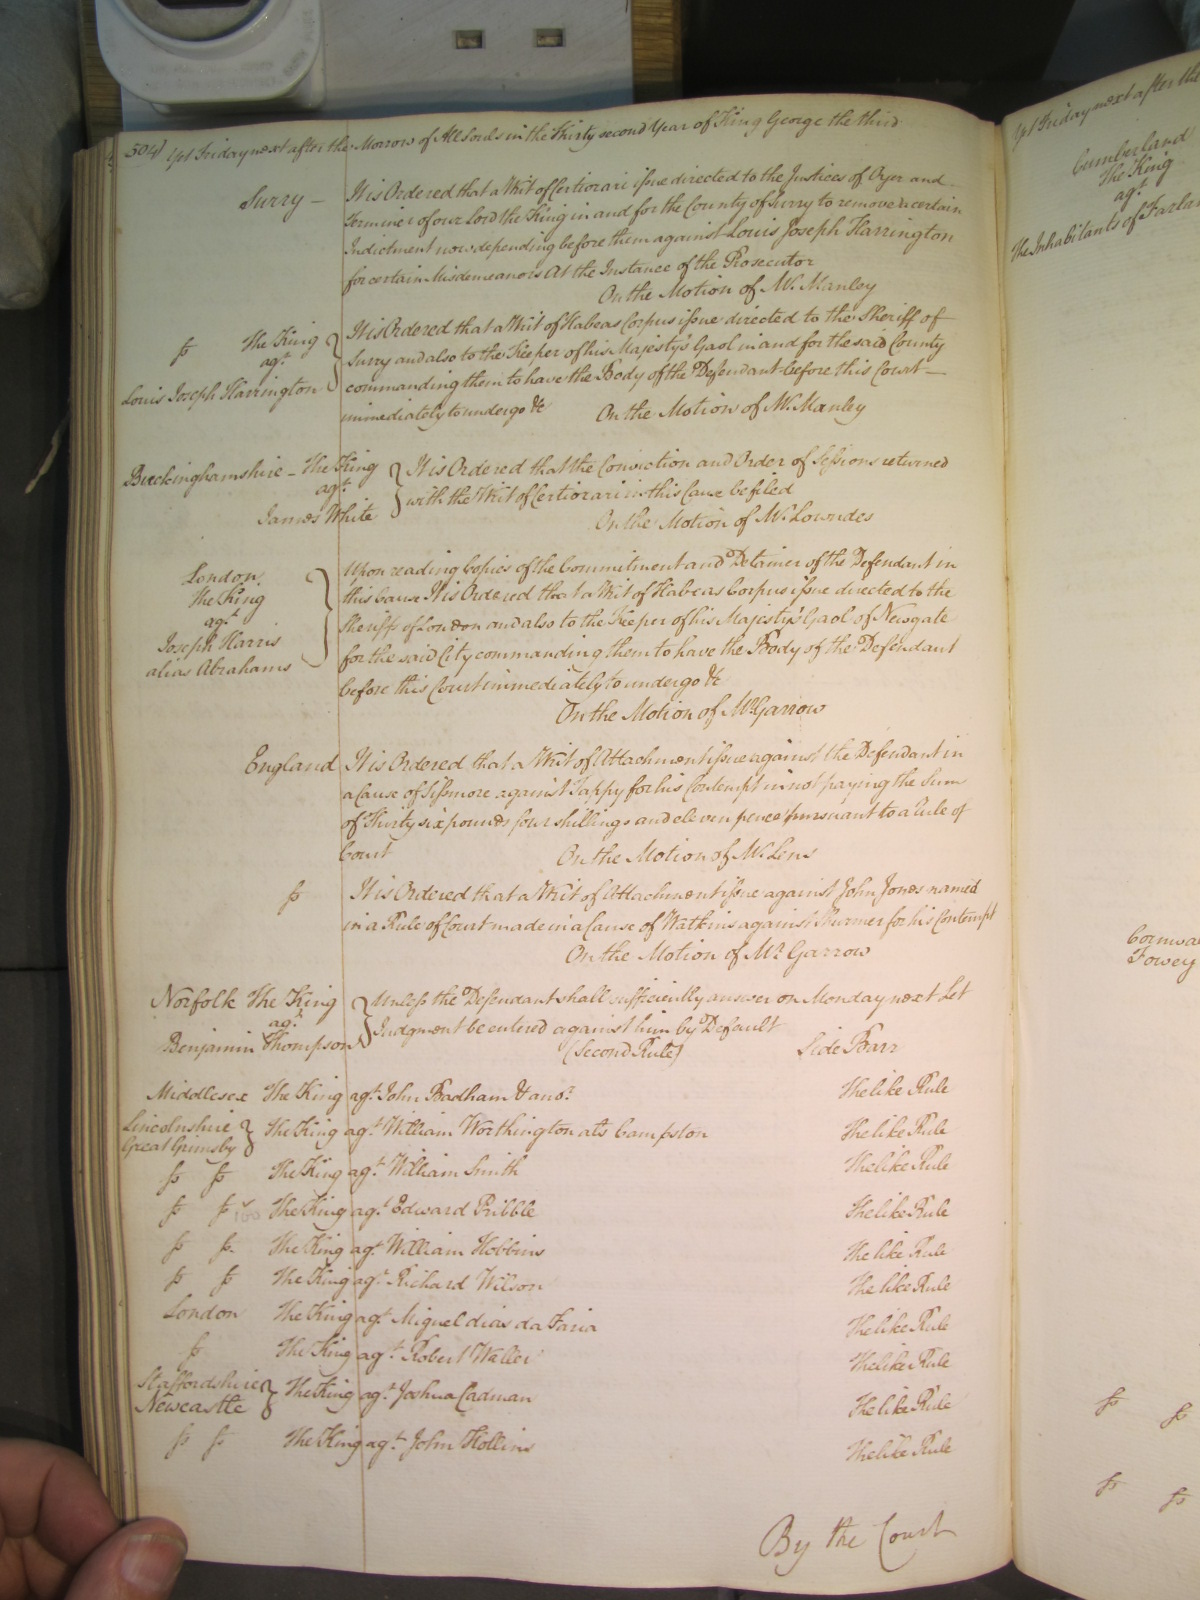 504 Yet Friday next after the Morrow of All Souls in the Thirty second Year of King George the third
Surry – It is Ordered that a Writ of Certiorari issue directed to the Justices of Oyer and
Terminer of our Lord the King in and for the County of Surry to remove a certain
Indictment now depending before them against Louis Joseph Harrington
for certain Misdemeanors At the Instance of the Prosecutor
On the Motion of Mr. Manley
The King
agt
Louis Joseph Harrington
It is Ordered that a Writ of Habeas Corpus issue directed to the Sheriff of
Surry and also to the Keeper of his Majesty's Gaol in and for the said County
commanding them to have the Body of the Defendant before this Court –
immediately to undergo &c On the Motion of Mr. Manley
Buckinghamshire – The King
agt
James White
It is Ordered that the Conviction and Order of Sessions returned
with the Writ of Certiorari in this Cause be filed
On the Motion of Mr. Lowndes
London
The King
agt
Joseph Harris
alias Abrahams
Upon reading Copies of the Commitment and Detainer of the Defendant in
this Cause It is Ordered that a Writ of Habeas Corpus issue directed to the
Sheriff of London and also to the Keeper of his Majesty's Gaol of Newgate
for the said City commanding them to have the Body of the Defendant
before this Court immediately to undergo &c
On the Motion of Mr. Garrow
England It is Ordered that a Writ of Attachment issue against the Defendant in
a Cause of Sissmore against Tappy for his Contempt in not paying the Sum
of Thirty six pounds four shillings and eleven pence pursuant to a Rule of
Court On the Motion of Mr. Lens
It is Ordered that a Writ of Attachment issue against John Jones named
in a Rule of Court made in a Cause of Watkins against for his Contempt
On the Motion of Mr. Garrow
Norfolk The King
agt
Benjamin Thompson
Unless the Defendant shall sufficiently answer on Monday next Let
Judgment be entered against him by Default
(Second Rule) Side Barr
Middlesex The King agt. John Badham & anor. The like Rule
Lincolnshire
Great Grimsby
The King agt. William Worthington als Campston The like Rule
The King agt. William Smith The like Rule
The King agt. Edward Pribble The like Rule
The King agt. William Hobbins The like Rule
The King agt. Richard Wilson The like Rule
London The King agt. Miguel dias da Faria The like Rule
The King agt. Robert Waller The like Rule
Staffordshire
Newcastle
The King agt. Joshua Cadman The like Rule
The King agt. John Hollins The like Rule
By the Court
Yet Friday next after the
Cumberland
The King
agt
The Inhabitants of
Fowey